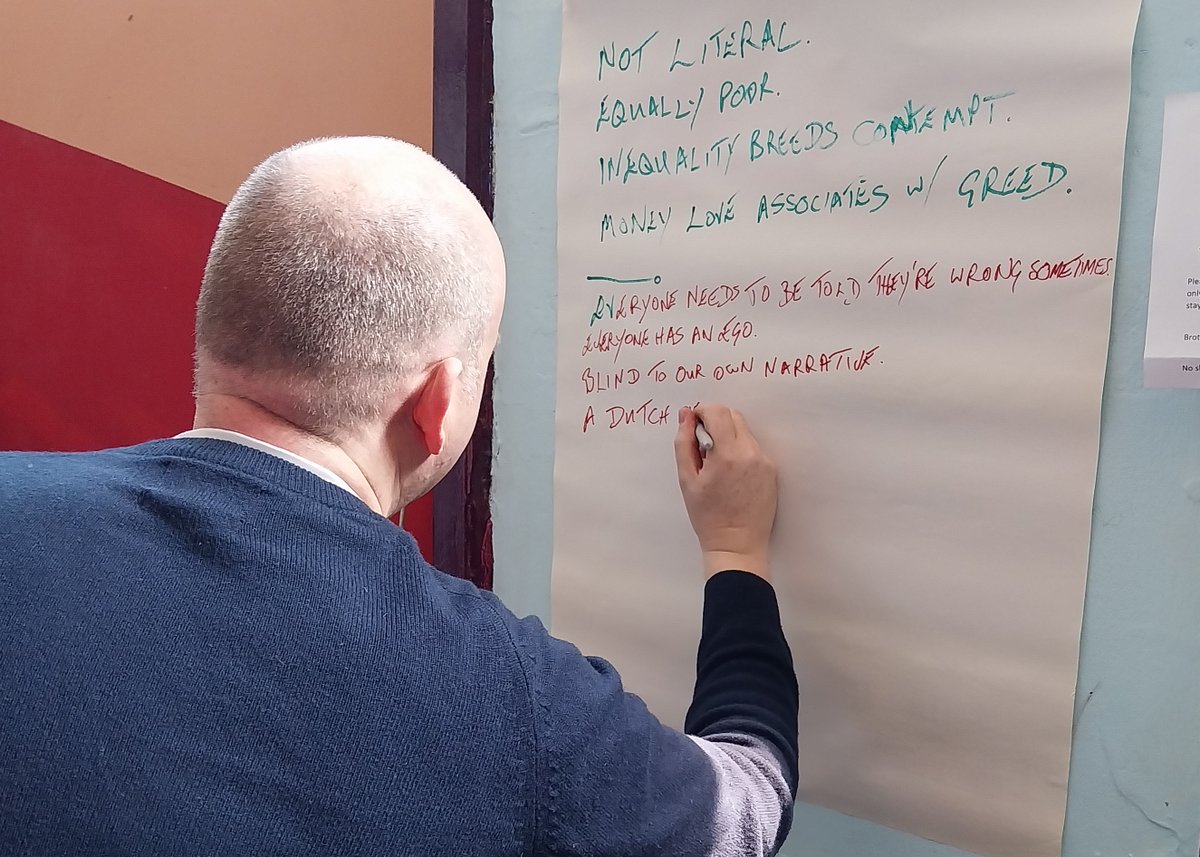 NOT LITERAL.
EQUALLY POOR.
INEQUALITY BREEDS CONTEMPT.
MONEY LOVE ASSOCIATES W/ GREED.
EVERYONE NEEDS TO BE TOLD THEY'RE WRONG SOMETIMES.
EVERYONE HAS AN EGO.
BLIND TO OUR OWN NARRATIVE.
A DUTCH
Ple
onl
stay
Brot
No s